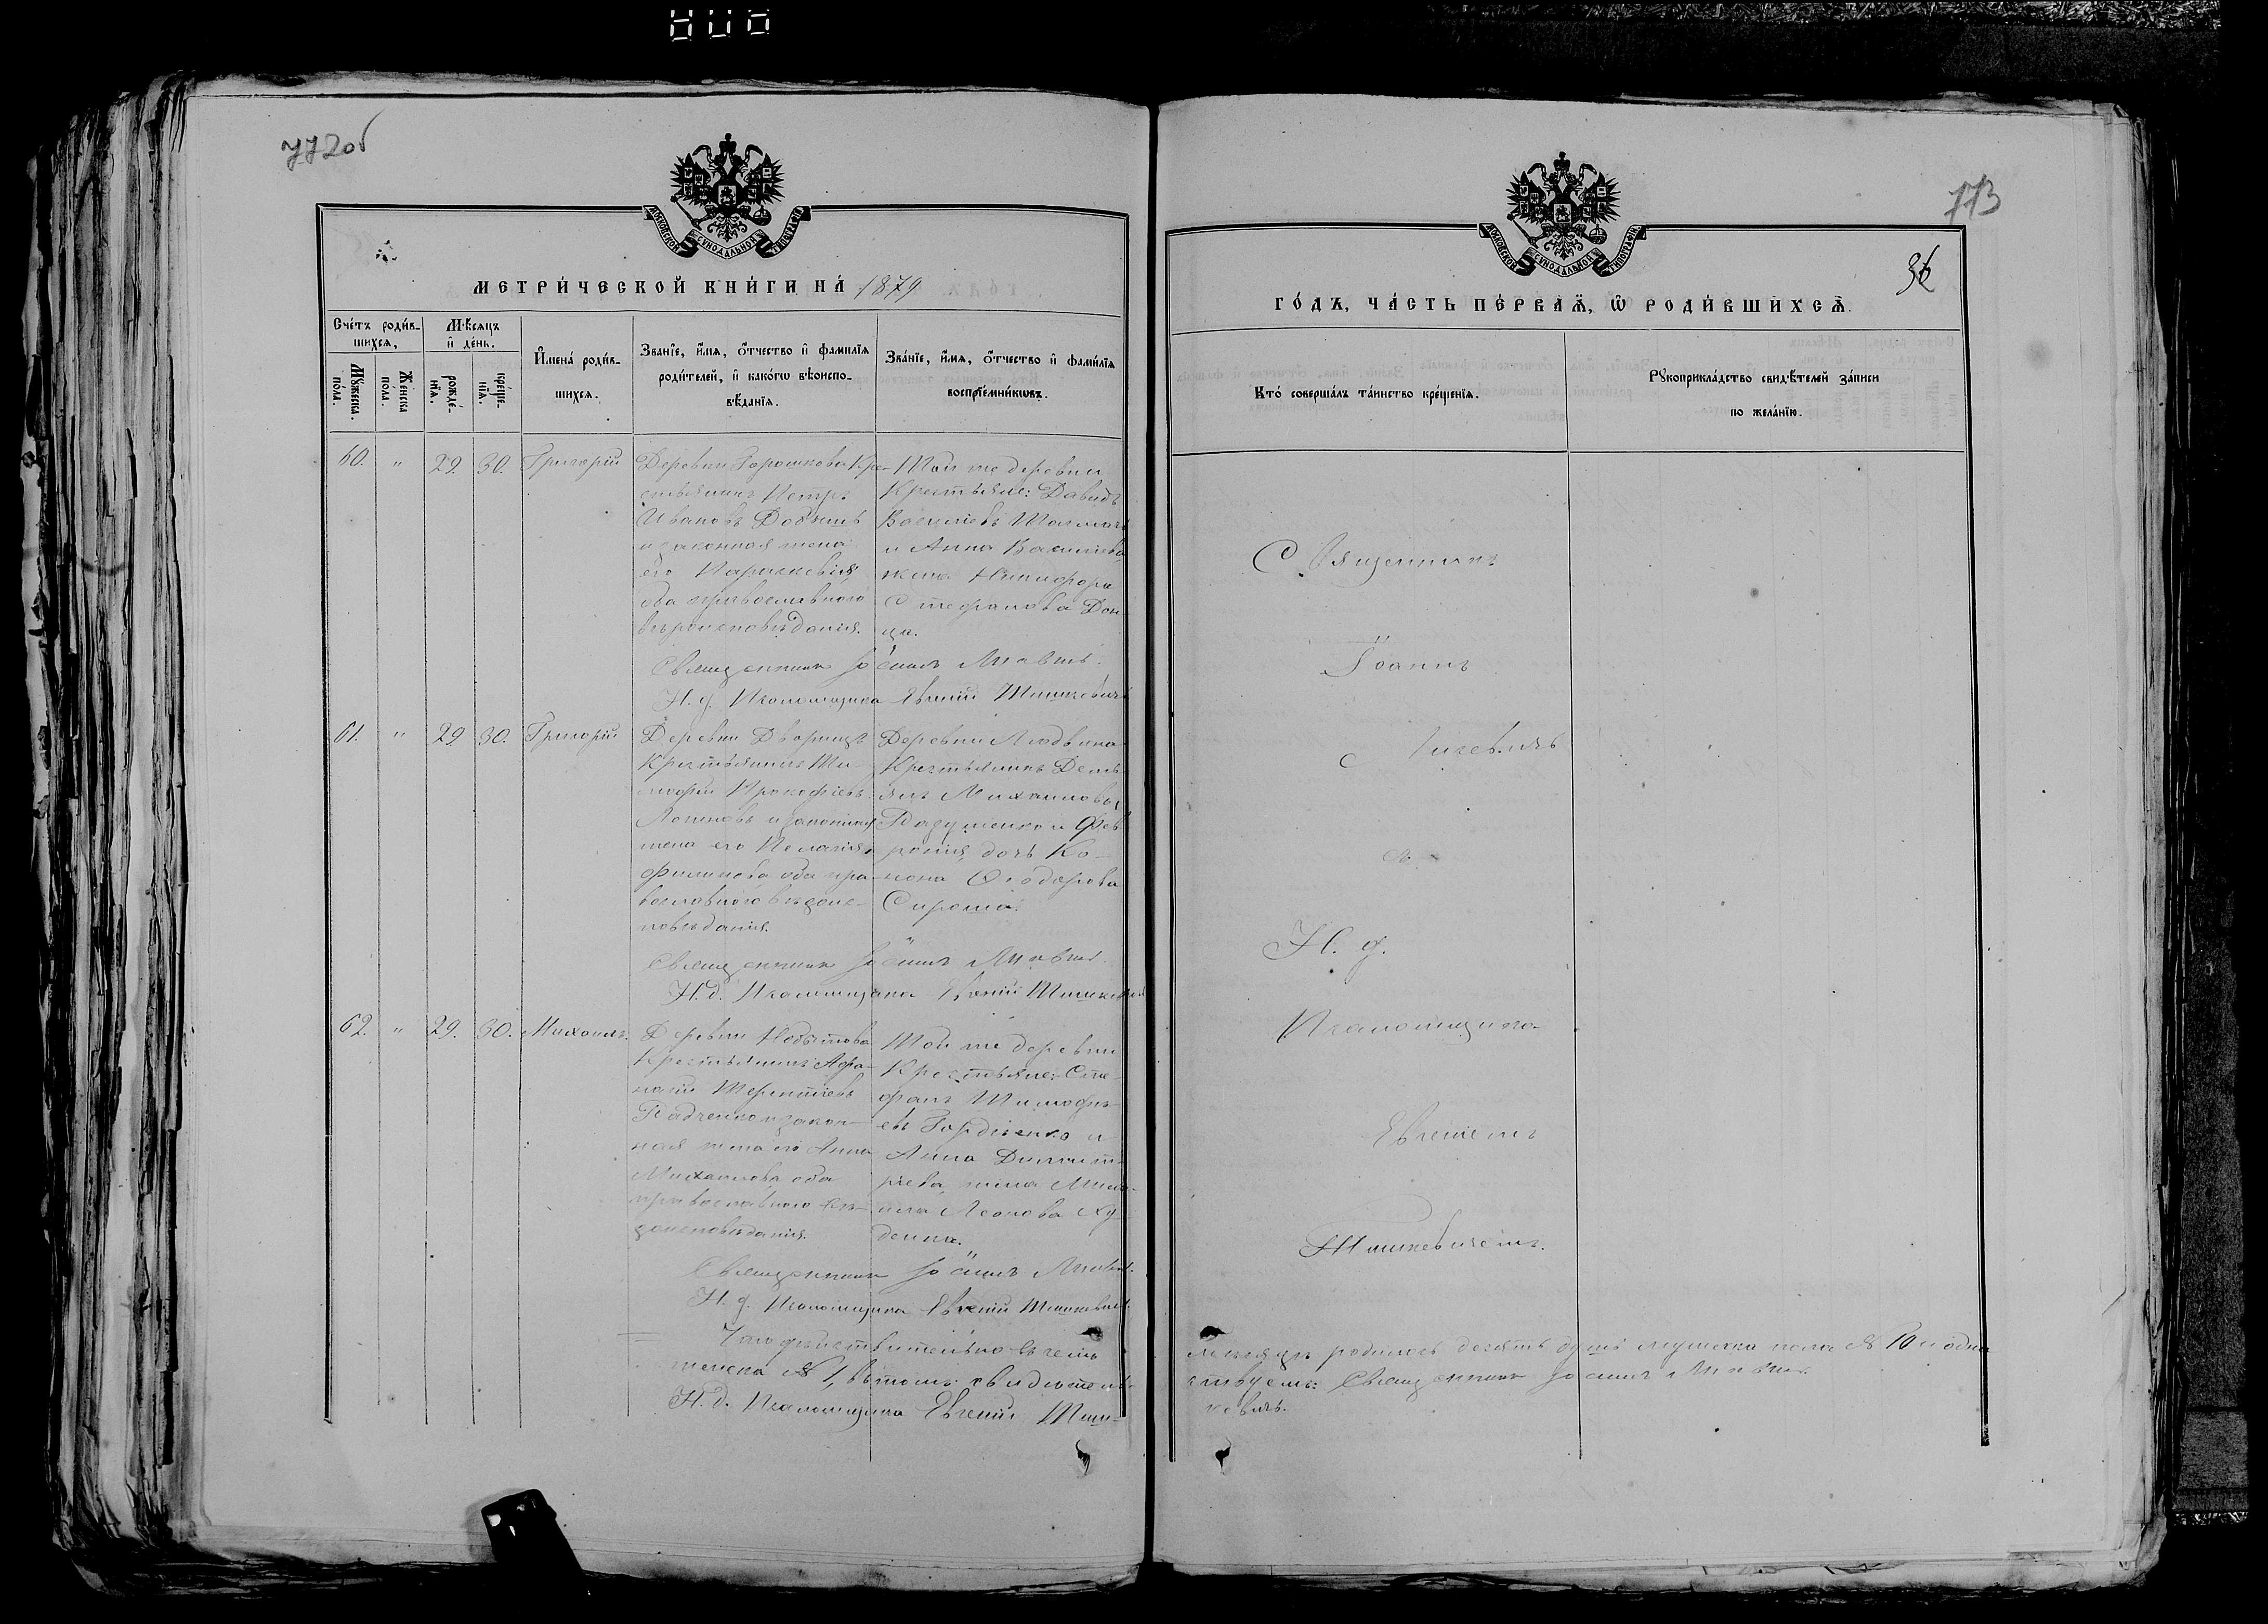 772об
МОСКОВСКОЙ СѴНОДАЛЬНОЙ ТИПОГРАФІИ
МЕТРИ́ЧЕСКОЙ КНИ́ГИ НА̀ 1879
Сче́тъ роди́в-
шихсѧ,
Мѣ́сѧцъ
и҆ де́нь.
Мꙋ́жеска по́ла.
Же́нска по́ла.
рожде́-
нїѧ.
креще́-
нїѧ.
И҆мена̀ роди́в-
шихсѧ.
Зва́нїе, и҆́мѧ, ѻ҆́тчество и҆ фами́лїѧ
роди́телей, и҆ како́гѡ вѣроиспо-
вѣ́данїѧ.
Зва́нїе, и҆́мѧ, ѻ҆́тчество и҆ фами́лїѧ
воспрїе́мникѡвъ.
60. " 29. 30. Григорій
Деревни Горошкова Кре-
стьянинъ Петръ
Ивановъ
и законная жена
его Параскевія,
оба православного
вѣроисповѣданія.
Той же деревни
Крестьяне: Давидъ
Василіевъ
и Анна Василіева
жена Никифора
Стефанова Дон-
ца.
Священникъ Іоаннъ
Н. д. Псаломщика Евгеній Шишкевичъ
61. " 29. 30. Григорій
Деревни Дворищъ
Крестьянинъ Ти-
мофей Прокофіевъ
Логиновъ и законная
жена его Пелагія
оба пра-
вославного вѣроис-
повѣданія.
Деревни Людвина
Крестьянинъ Демь-
янъ Михаиловъ
и Фев-
ронія, дочь Ко-
нона Ѳеодорова
Сирота.
Священникъ Іоаннъ
Н. д. Псаломщика Евгеній Шишкевичъ
62. " 29. 30. Михаилъ.
Деревни
Крестьянинъ Афа-
насій Терентіевъ
и закон-
ная жена его Анна
Михаилова оба
православного вѣ-
роисповѣданія.
Той же деревни
Крестьяне: Сте-
фанъ Тимофѣ-
евъ Гордіенко и
Анна Димит-
ріева, жена Миха-
ила Леонова Ху-
денка.
Священникъ Іоаннъ
Н. д. Псаломщика Евгеній Шишкевичъ.
Что дѣйствительно въ семъ
женска № 1, въ томъ свидѣтель-
Н. д. Псаломщика Евгеній Шиш-
773
36
МОСКОВСКОЙ СѴНОДАЛЬНОЙ ТИПОГРАФІИ
ГО́ДЪ, ЧА́СТЬ ПЕ́РВАѦ, Ѡ҆ РОДИ́ВШИХСѦ.
Кто̀ соверша́лъ та́инство креще́нїѧ.
Рꙋкоприкла́дство свидѣ́телей за́писи
по жела́нїю.
Священникъ
Іоаннъ
съ
Н. д.
Псаломщика
Евгеніемъ
Шишкевичемъ.
мѣсяцѣ родилось десять душъ мужеска пола № 10 и одна
ствуемъ: Священникъ Іоаннъ
кевичъ.